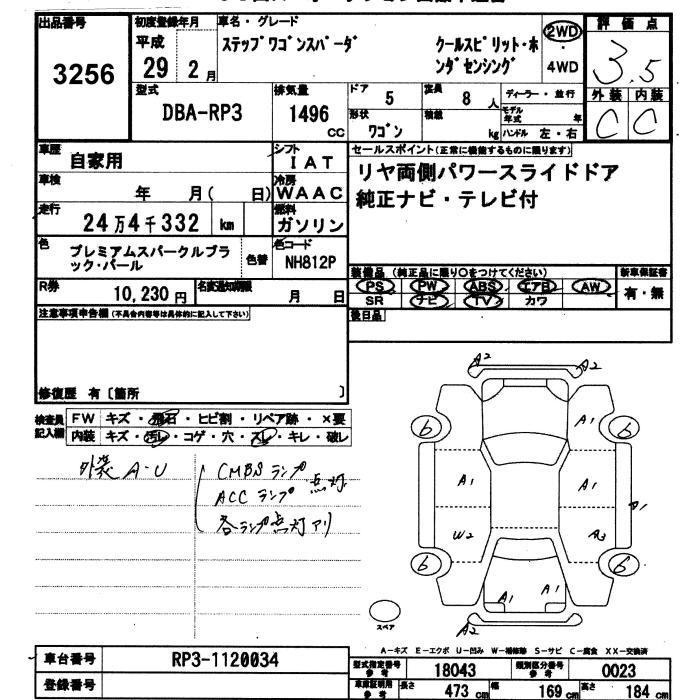 出品番号
3256
初度登録年月
平成
29年2月
車名・グレード
ステップワゴンスパーダ クールスピリット・ホ
ンダセンシング
2WD
4WD
評価点
3.5
外装 内装
C C
型式
DBA-RP3
排気量
1496
cc
ドア 5
定員 8人
ディーラー・並行
形状 ワゴン
積載 kg
モデル年式 年
ハンドル 左・右
車歴 自家用
シフト IAT
車検 年 月( 日)
冷房 WAAC
走行 24万4千332 km
燃料 ガソリン
色 プレミアムスパークルブラ
ック・パール
色替
色コード NH812P
R券 10,230円
名変通知期限 月 日
セールスポイント(正常に機能するものに限ります)
リヤ両側パワースライドドア
純正ナビ・テレビ付
装備品 (純正品に限り○をつけてください)
PS PW ABS エアB AW
SR ナビ TV カワ
新車保証書
有・無
後日品
注意事項申告欄(不具合内容等は具体的に記入して下さい)
修復歴 有〔箇所 〕
検査員記入欄
FW キズ・飛石・ヒビ割・リペア跡・×要
内装 キズ・汚レ・コゲ・穴・スレ・キレ・破レ
外装 A-U
CMBSランプ
ACCランプ 点灯
各ランプ点灯アリ
A2
A2
A1
6 6
A1 A1
A1
W2 A3
6 6
A1 A1
A2
スペア
A-キズ E-エクボ U-凹み W-補修跡 S-サビ C-腐食 XX-交換済
車台番号 RP3-1120034
登録番号
型式指定番号 参考 18043
類別区分番号 参考 0023
車庫証明用 参考 長さ 473 cm 幅 169 cm 高さ 184 cm